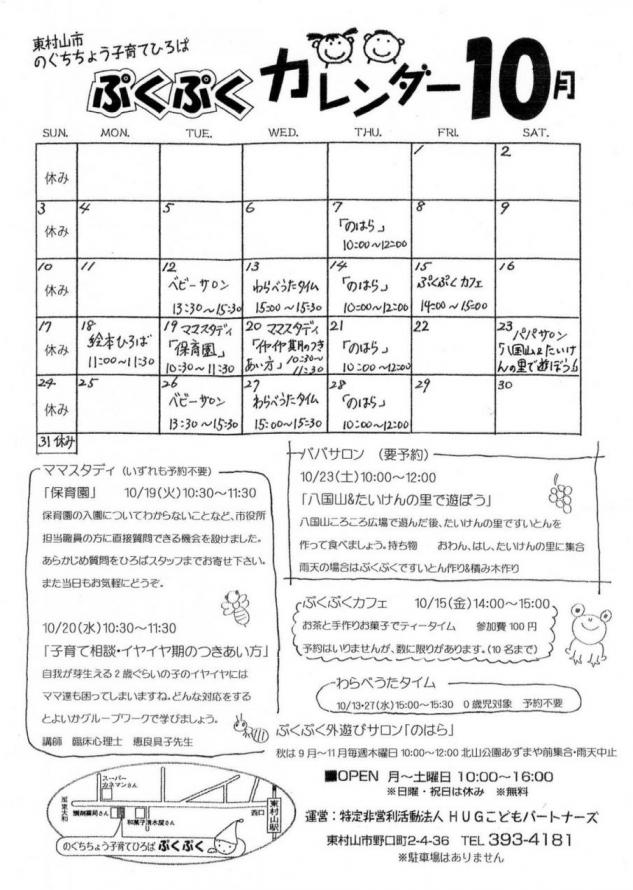 東村山市
のぐちちょう子育てひろば
ぷくぷく カレンダー 10月
SUN. MON. TUE. WED. THU. FRI. SAT.
休み 1 2
3 休み 4 5 6 7 「のはら」 10:00～12:00 8 9
10 休み 11 12 ベビーサロン 13:30～15:30 13 わらべうたタイム 15:00～15:30 14 「のはら」 10:00～12:00 15 ぷくぷくカフェ 14:00～15:00 16
17 休み 18 絵本ひろば 11:00～11:30 19 ママスタディ 「保育園」 10:30～11:30 20 ママスタディ 「イヤイヤ期のつきあい方」 10:30～11:30 21 「のはら」 10:00～12:00 22 23 パパサロン 「八国山&たいけんの里で遊ぼう」
24 休み 25 26 ベビーサロン 13:30～15:30 27 わらべうたタイム 15:00～15:30 28 「のはら」 10:00～12:00 29 30
31 休み
ママスタディ（いずれも予約不要）
「保育園」 10/19(火)10:30～11:30
保育園の入園についてわからないことなど、市役所
担当職員の方に直接質問できる機会を設けました。
あらかじめ質問をひろばスタッフまでお寄せ下さい。
また当日もお気軽にどうぞ。
10/20(水)10:30～11:30
「子育て相談・イヤイヤ期のつきあい方」
自我が芽生える2歳ぐらいの子のイヤイヤには
ママ達も困ってしまいますね。どんな対応をする
とよいかグループワークで学びましょう。
講師 臨床心理士 恵良具子先生
パパサロン （要予約）
10/23(土)10:00～12:00
「八国山&たいけんの里で遊ぼう」
八国山ころころ広場で遊んだ後、たいけんの里ですいとんを
作って食べましょう。持ち物 おわん、はし、たいけんの里に集合
雨天の場合はぷくぷくですいとん作り&積み木作り
ぷくぷくカフェ 10/15(金)14:00～15:00
お茶と手作りお菓子でティータイム 参加費100円
予約はいりませんが、数に限りがあります。(10名まで)
わらべうたタイム
10/13・27(水)15:00～15:30 0歳児対象 予約不要
ぷくぷく外遊びサロン「のはら」
秋は9月～11月毎週木曜日10:00～12:00 北山公園あずまや前集合・雨天中止
スーパー
カネマンさん
至東大和
和菓子清水屋さん
西口
東村山駅
のぐちちょう子育てひろば ぷくぷく
■OPEN 月～土曜日 10:00～16:00
※日曜・祝日は休み ※無料
運営：特定非営利活動法人 HUGこどもパートナーズ
東村山市野口町2-4-36 TEL 393-4181
※駐車場はありません